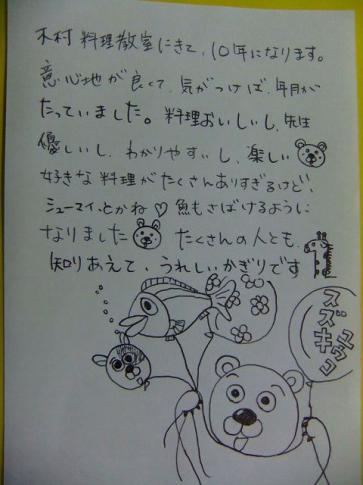 木村料理教室にきて、10年になります。
意心地が良くて、気がつけば、年月が
たっていました。料理おいしいし、先生
優しいし、わかりやすいし、楽しい
好きな料理がたくさんありすぎるけど、
シューマイ、とかね♡魚もさばけるように
なりました たくさんの人とも、
知りあえて、うれしいかぎりです
スズキ